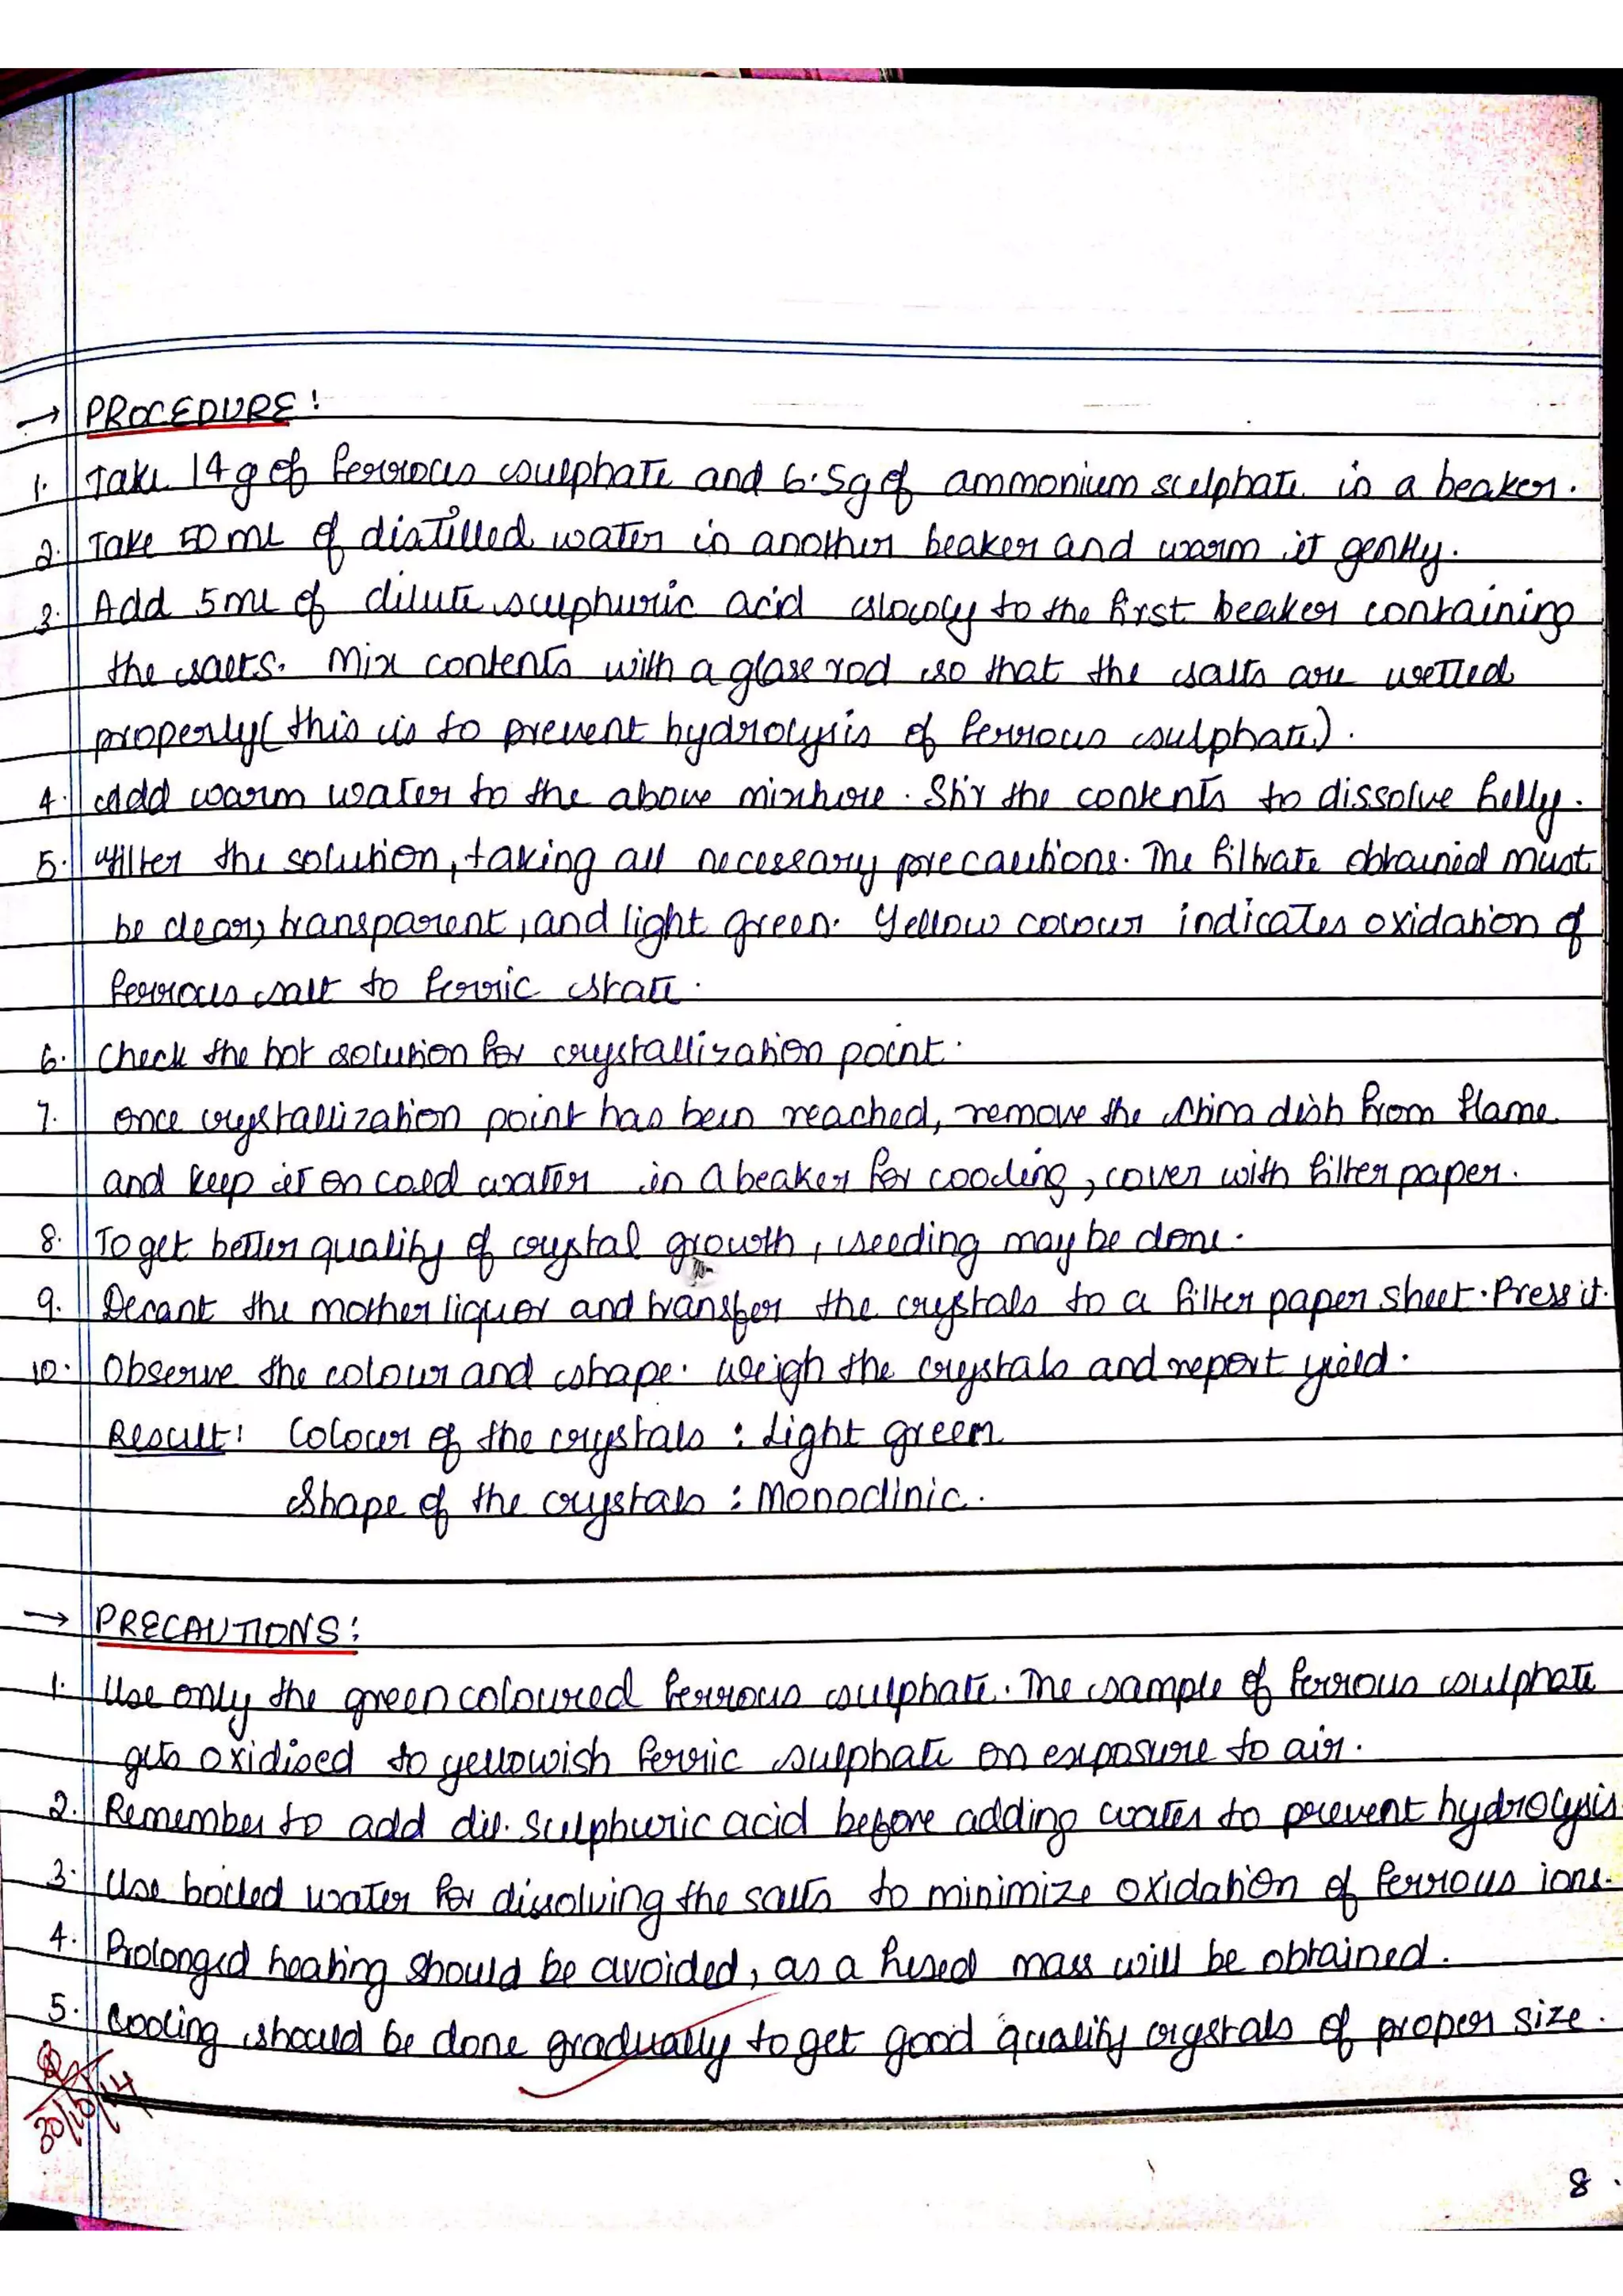 → PROCEDURE:
1. Take 14g of ferrous sulphate and 6.5g of ammonium sulphate in a beaker.
2. Take 50ml of distilled water in another beaker and warm it gently.
3. Add 5ml of dilute sulphuric acid slowly to the first beaker containing
the salts. Mix contents with a glass rod so that the salts are wetted
properly (this is to prevent hydrolysis of ferrous sulphate).
4. Add warm water to the above mixture. Stir the contents to dissolve fully.
5. Filter the solution, taking all necessary precautions. The filtrate obtained must
be clear, transparent, and light green. Yellow colour indicates oxidation of
ferrous salt to ferric state.
6. Check the hot solution for crystallization point.
7. Once crystallization point has been reached, remove the china dish from flame
and keep it on cold water in a beaker for cooling, cover with filter paper.
8. To get better quality of crystal growth, seeding may be done.
9. Decant the mother liquor and transfer the crystals to a filter paper sheet. Press it.
10. Observe the colour and shape. Weigh the crystals and report yield.
Result: Colour of the crystals : Light green
Shape of the crystals : Monoclinic.
→ PRECAUTIONS:
1. Use only the green coloured ferrous sulphate. The sample of ferrous sulphate
gets oxidised to yellowish ferric sulphate on exposure to air.
2. Remember to add dil. sulphuric acid before adding water to prevent hydrolysis.
3. Use boiled water for dissolving the salts to minimize oxidation of ferrous ions.
4. Prolonged heating should be avoided, as a fused mass will be obtained.
5. Cooling should be done gradually to get good quality crystals of proper size.
30/10/14
8.